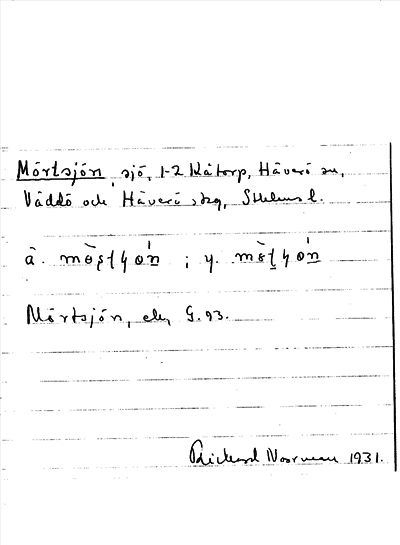 Mörtsjön, sjö, 1-2 Kåtorp, Häverö sn,
Väddö och Häverö skg, Sthlms l.
ä. ; y.
Mörtsjön, ek, G. 93.
Rickard Norrman 1931.